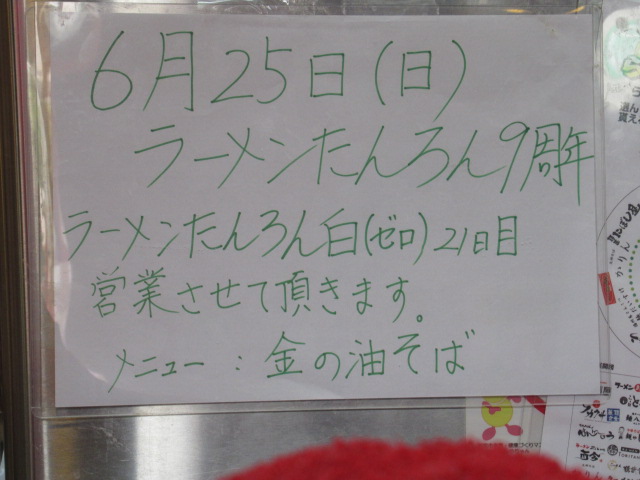 6月25日(日)
ラーメンたんろん9周年
ラーメンたんろん白(ゼロ)21日目
営業させて頂きます。
メニュー:金の油そば